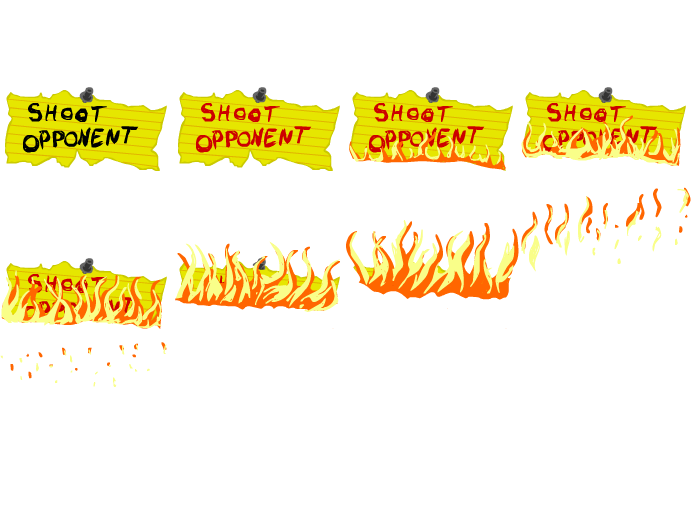 SHOOT
OPPONENT
SHOOT
OPPONENT
SHOOT
OPPONENT
SHOOT
OPPONENT
SHOOT
OPPONENT